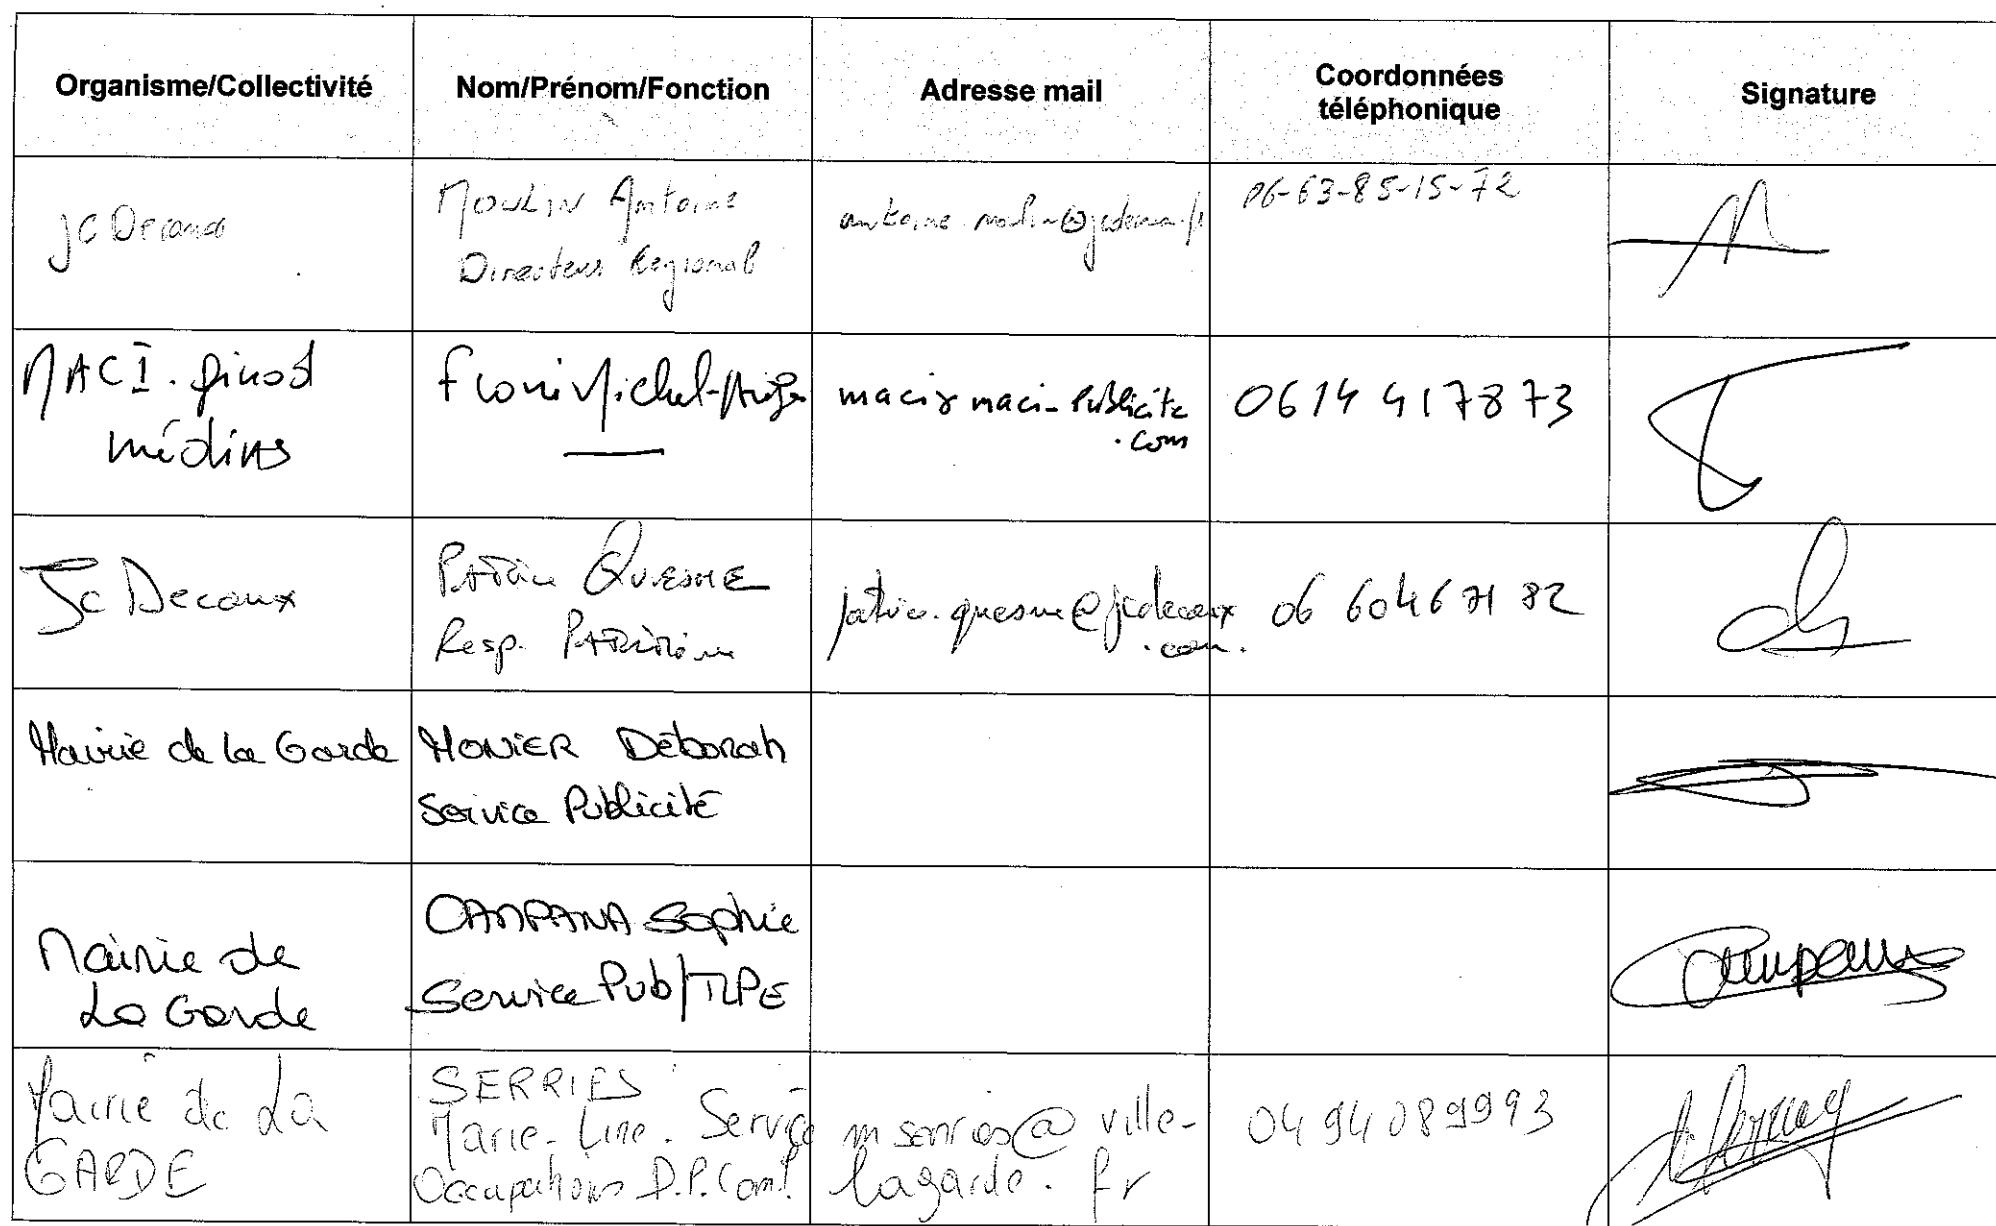 Organisme/Collectivité
Nom/Prénom/Fonction
Adresse mail
Coordonnées
téléphonique
Signature
JC Decaux
MOULIN Antoine
Directeur Régional
antoine.moulin@jcdecaux.fr
06-63-85-15-72
MACI. girod
médias
Michel
maci@maci-Publicite
.com
0614 417873
JC Decaux
Patrice QUESNE
Resp. Patrimoine
patrice.quesne@jcdecaux
.com.
06 60467182
Mairie de la Garde
MONIER Déborah
Service Publicité
Mairie de
La Garde
CAMPANA Sophie
Service Pub/TLPE
Campana
Mairie de La
GARDE
SERRIES
Marie-Line. Service
Occupations D.P. Com.
mserries@ville-
lagarde.fr
0494089993